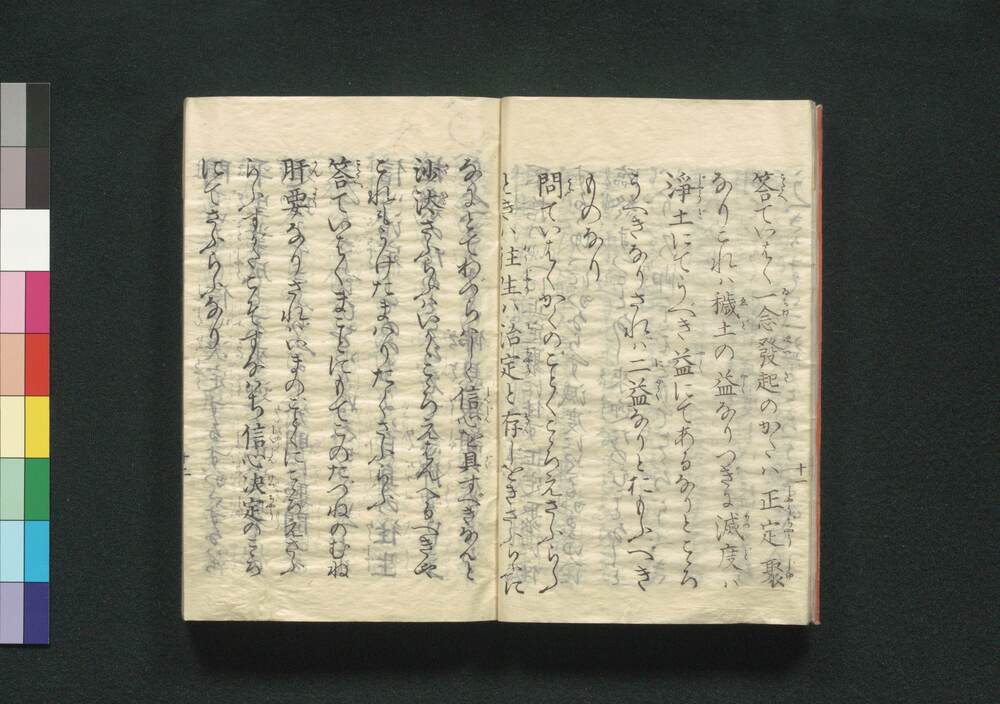 答ていはく一念發起のかたハ正定聚
なりこれハ穢土の益なりつきに滅度ハ
淨土にてうへき益にてあるなりとこゝろ
うへきなりされハ二益なりとおもふへき
ものなり
問ていはくかくのことくこゝろえさふらふ
ときハ往生ハ治定と存しをきさふらふに
なにとてわつらハしく信心を具すへきなんと
沙汰さふらふハいかゝこゝろえはんへるへきや
これもうけたまハりたくさふらふ
答ていはくまことにもてこのたつねのむね
肝要なりされハいまのことくにこゝろえさふ
らふすかたこそすなハち信心决定のこゝろ
にてさふらふなり
十一